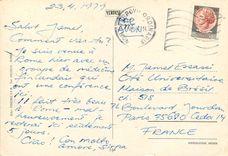 23.4.1979
Salut Jamel,
Comment vas-tu?
Je suis venue à
Rome hier avec un
groupe de médecins
finlandais qui
ont une conférence
ici.
Il faut très beau
à Rome - mal-
heureusement je
resterai ici seulement
5 jours.
Ciao! Con molto
amore, Sirpa
PAR AVION
M. Jamel Essassi
Cité Universitaire
Maison du Brésil
ch. 518
Boulevard Jourdan
75690 Cedex 14
Paris
FRANCE